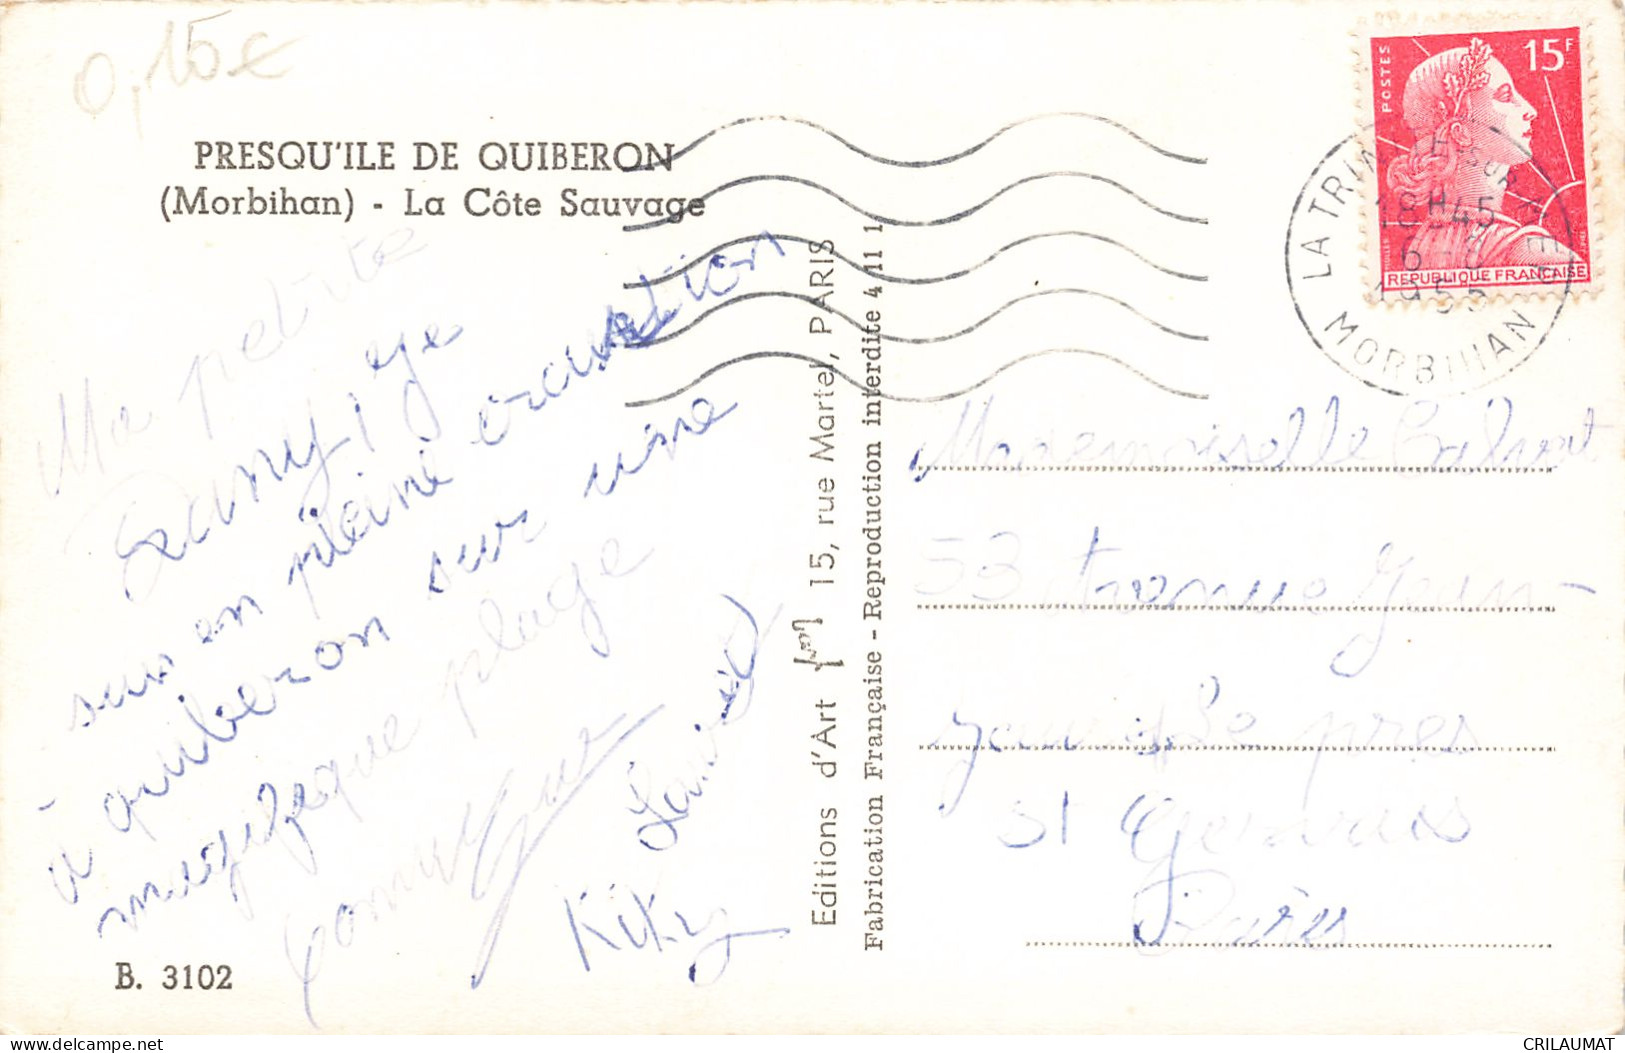 0,15€
PRESQU'ILE DE QUIBERON
(Morbihan) - La Côte Sauvage
Ma petite
Dany, je
suis en pleine
à quiberon sur une
magnifique plage
Kiky
B. 3102
Editions d'Art 15, rue Martel, PARIS
Fabrication Française - Reproduction interdite 4 11 1
POSTES
15F
REPUBLIQUE FRANÇAISE
LA TRINITE-SUR-MER
18H45
6-8
1955
MORBIHAN
Mademoiselle Calvat
53 Jean-
près
St Gervais
CRILAUMAT